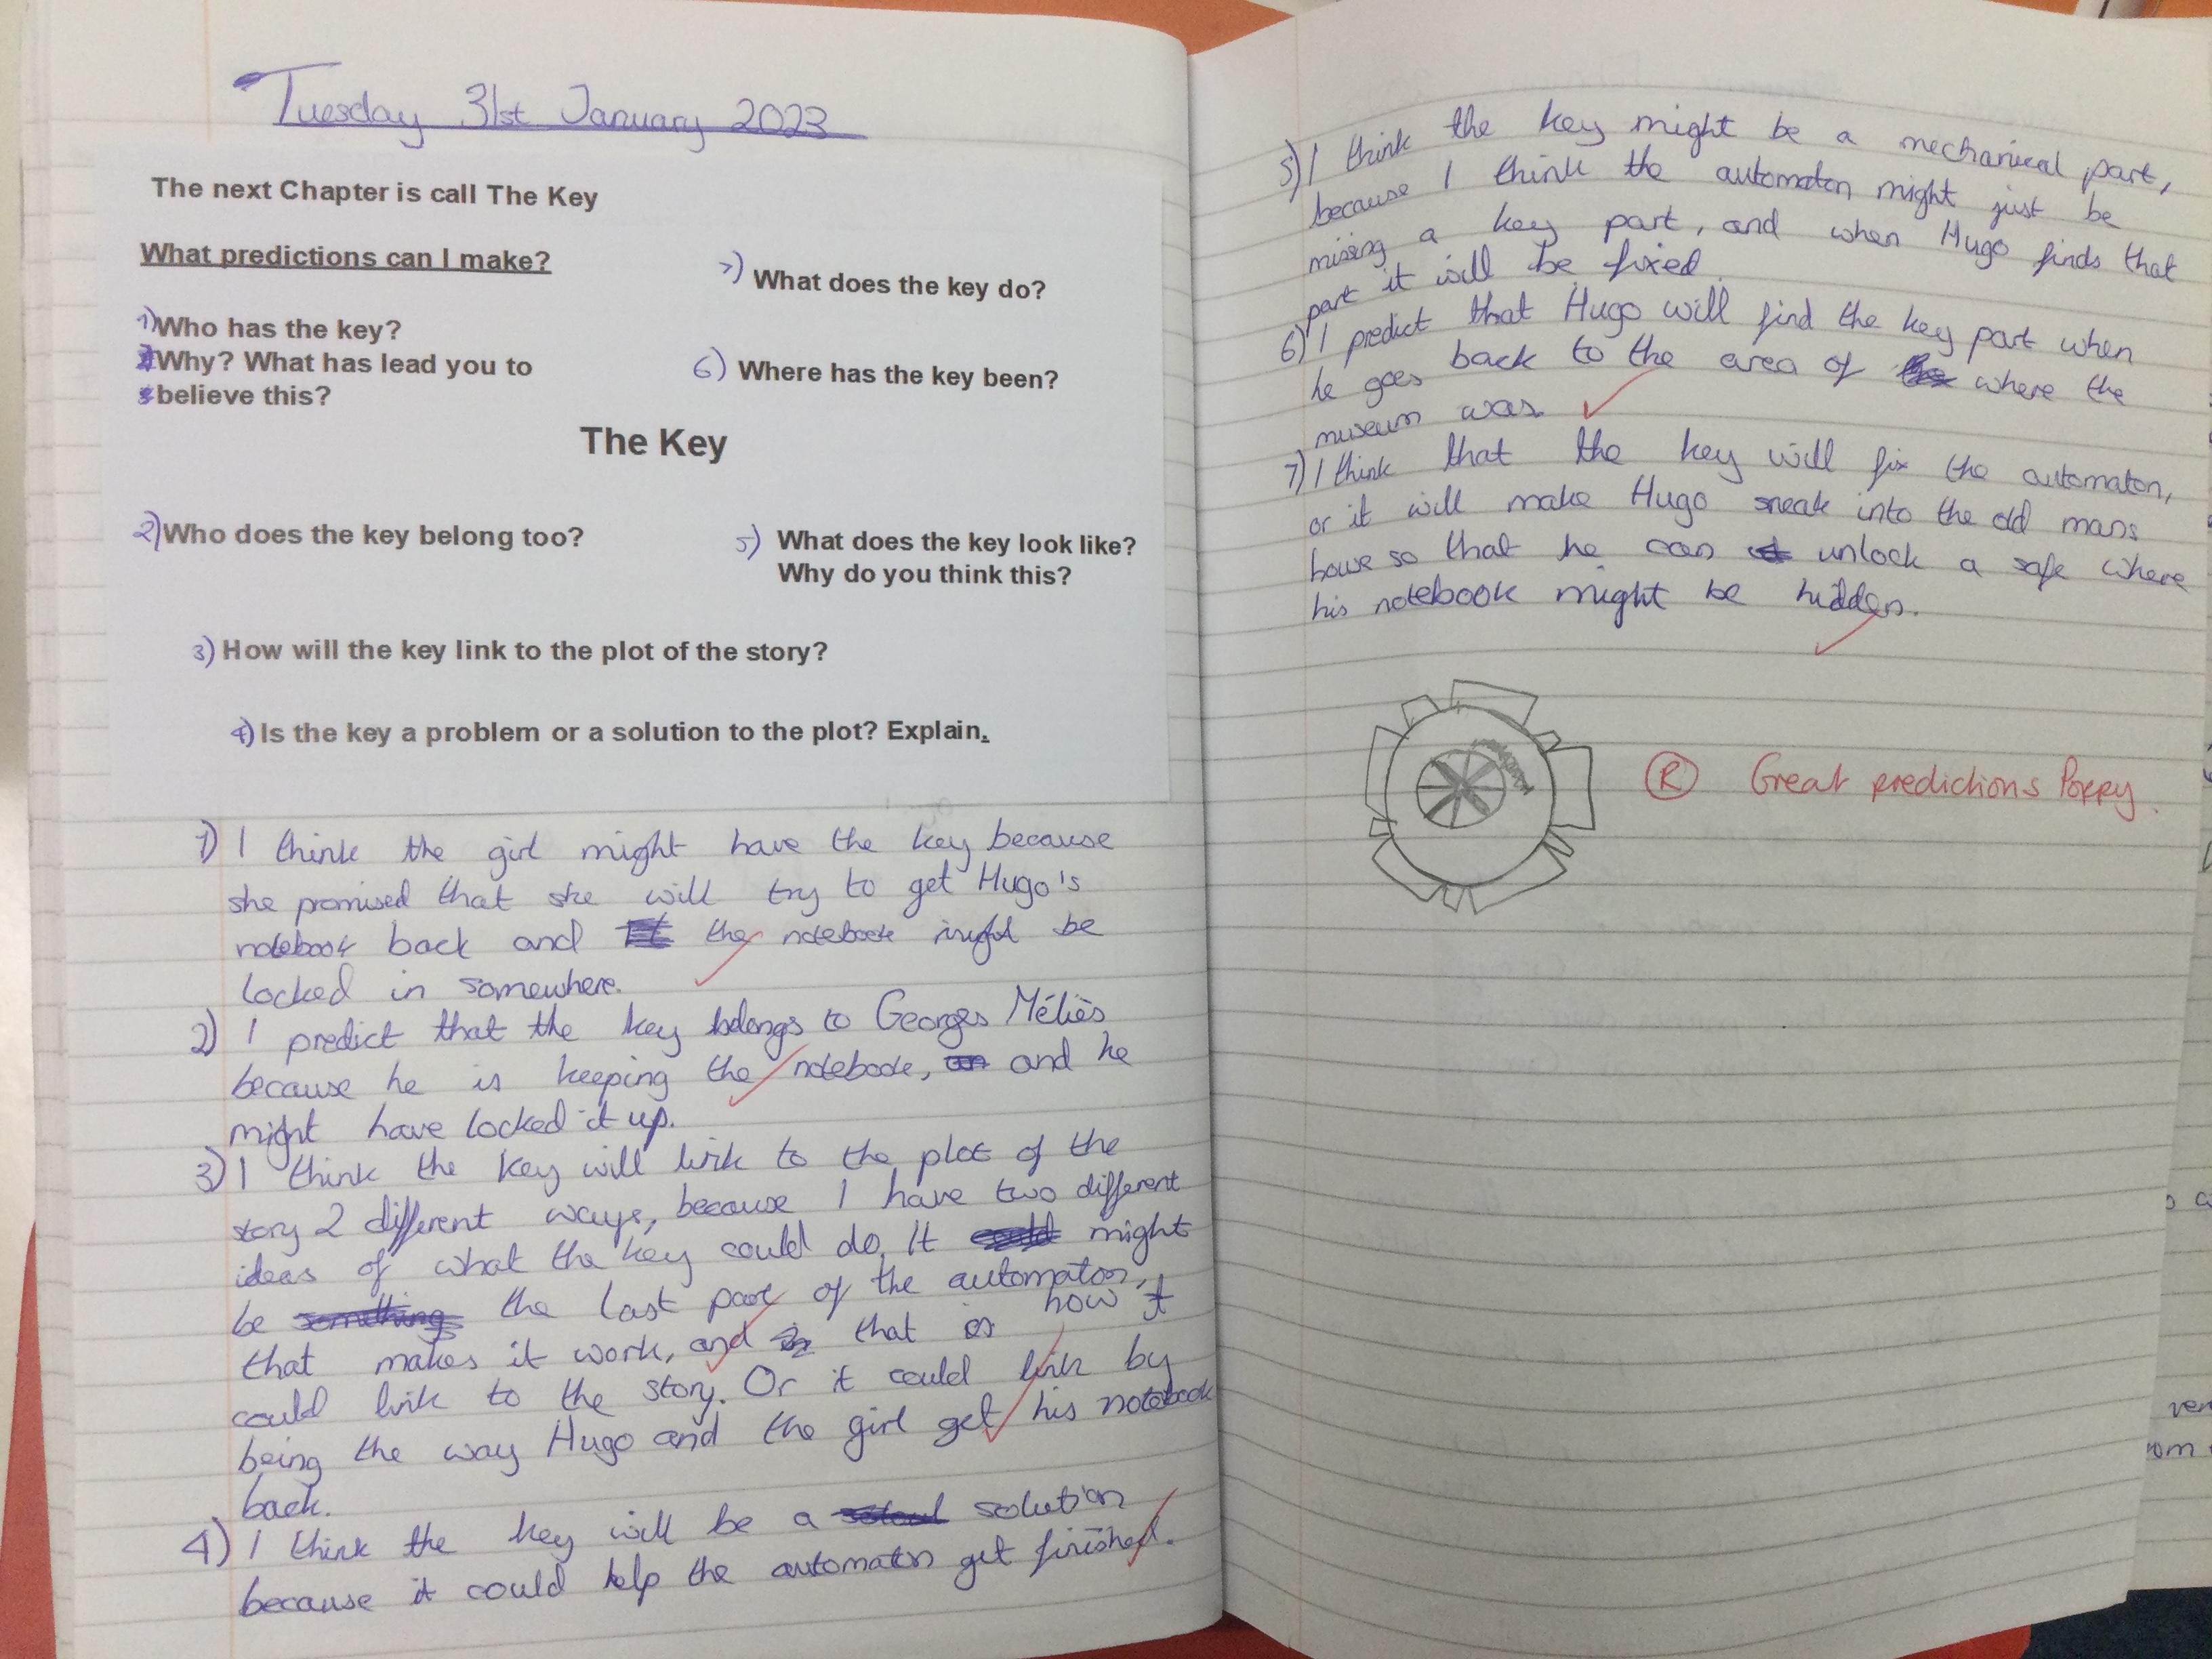 Tuesday 31st January 2023
The next Chapter is call The Key
What predictions can I make?
7) What does the key do?
1) Who has the key?
Why? What has lead you to
believe this?
6) Where has the key been?
The Key
2) Who does the key belong too?
5) What does the key look like?
Why do you think this?
3) How will the key link to the plot of the story?
4) Is the key a problem or a solution to the plot? Explain.
1) I think the girl might have the key because
she promised that she will try to get Hugo's
notebook back and the notebook might be
locked in somewhere.
2) I predict that the key belongs to Georges Méliès
because he is keeping the notebook, and he
might have locked it up.
3) I think the key will link to the plot of the
story 2 different ways, because I have two different
ideas of what the key could do. It could might
be something the last part of the automaton,
that makes it work, and that is how it
could link to the story. Or it could link by
being the way Hugo and the girl get his notebook
back.
4) I think the key will be a solution
because it could help the automaton get finished.
5) I think the key might be a mechanical part,
because I think the automaton might just be
missing a key part, and when Hugo finds that
part it will be fixed.
6) I predict that Hugo will find the key part when
he goes back to the area of where the
museum was.
7) I think that the key will fix the automaton,
or it will make Hugo sneak into the old mans
house so that he can unlock a safe where
his notebook might be hidden.
R Great predictions Poppy.